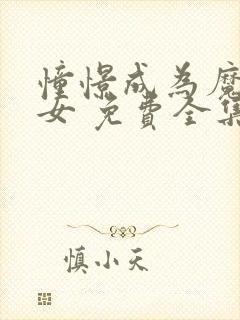 憧憬成為魔
女 免費全集
慎小天